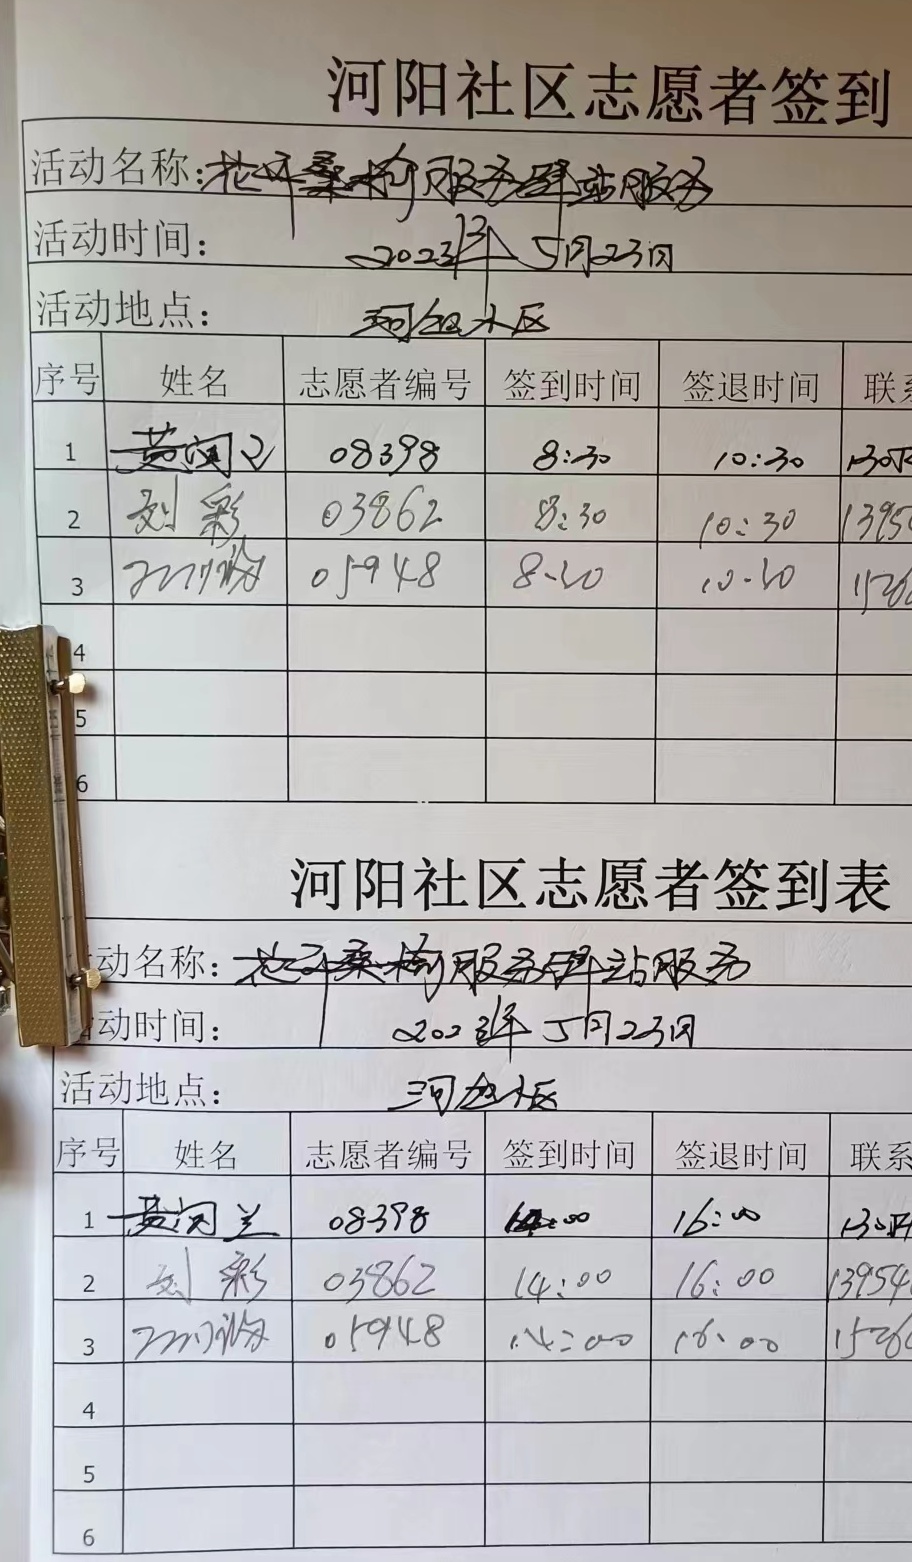 河阳社区志愿者签到
活动名称:桑榆服务驿站服务
活动时间: 2023年5月23日
活动地点: 小区
序号 姓名 志愿者编号 签到时间 签退时间 联系
1 黄润 08398 8:30 10:30 130
2 刘彩 03862 8:30 10:30 1395
3 05948 8-30 10-30 1526
4
5
6
河阳社区志愿者签到表
动名称: 桑榆服务驿站服务
动时间: 2023年5月23日
活动地点: 小区
序号 姓名 志愿者编号 签到时间 签退时间 联系
1 黄润兰 08398 14:00 16:00 130
2 刘彩 03862 14:00 16:00 13954
3 05948 14:00 16:00 1526
4
5
6